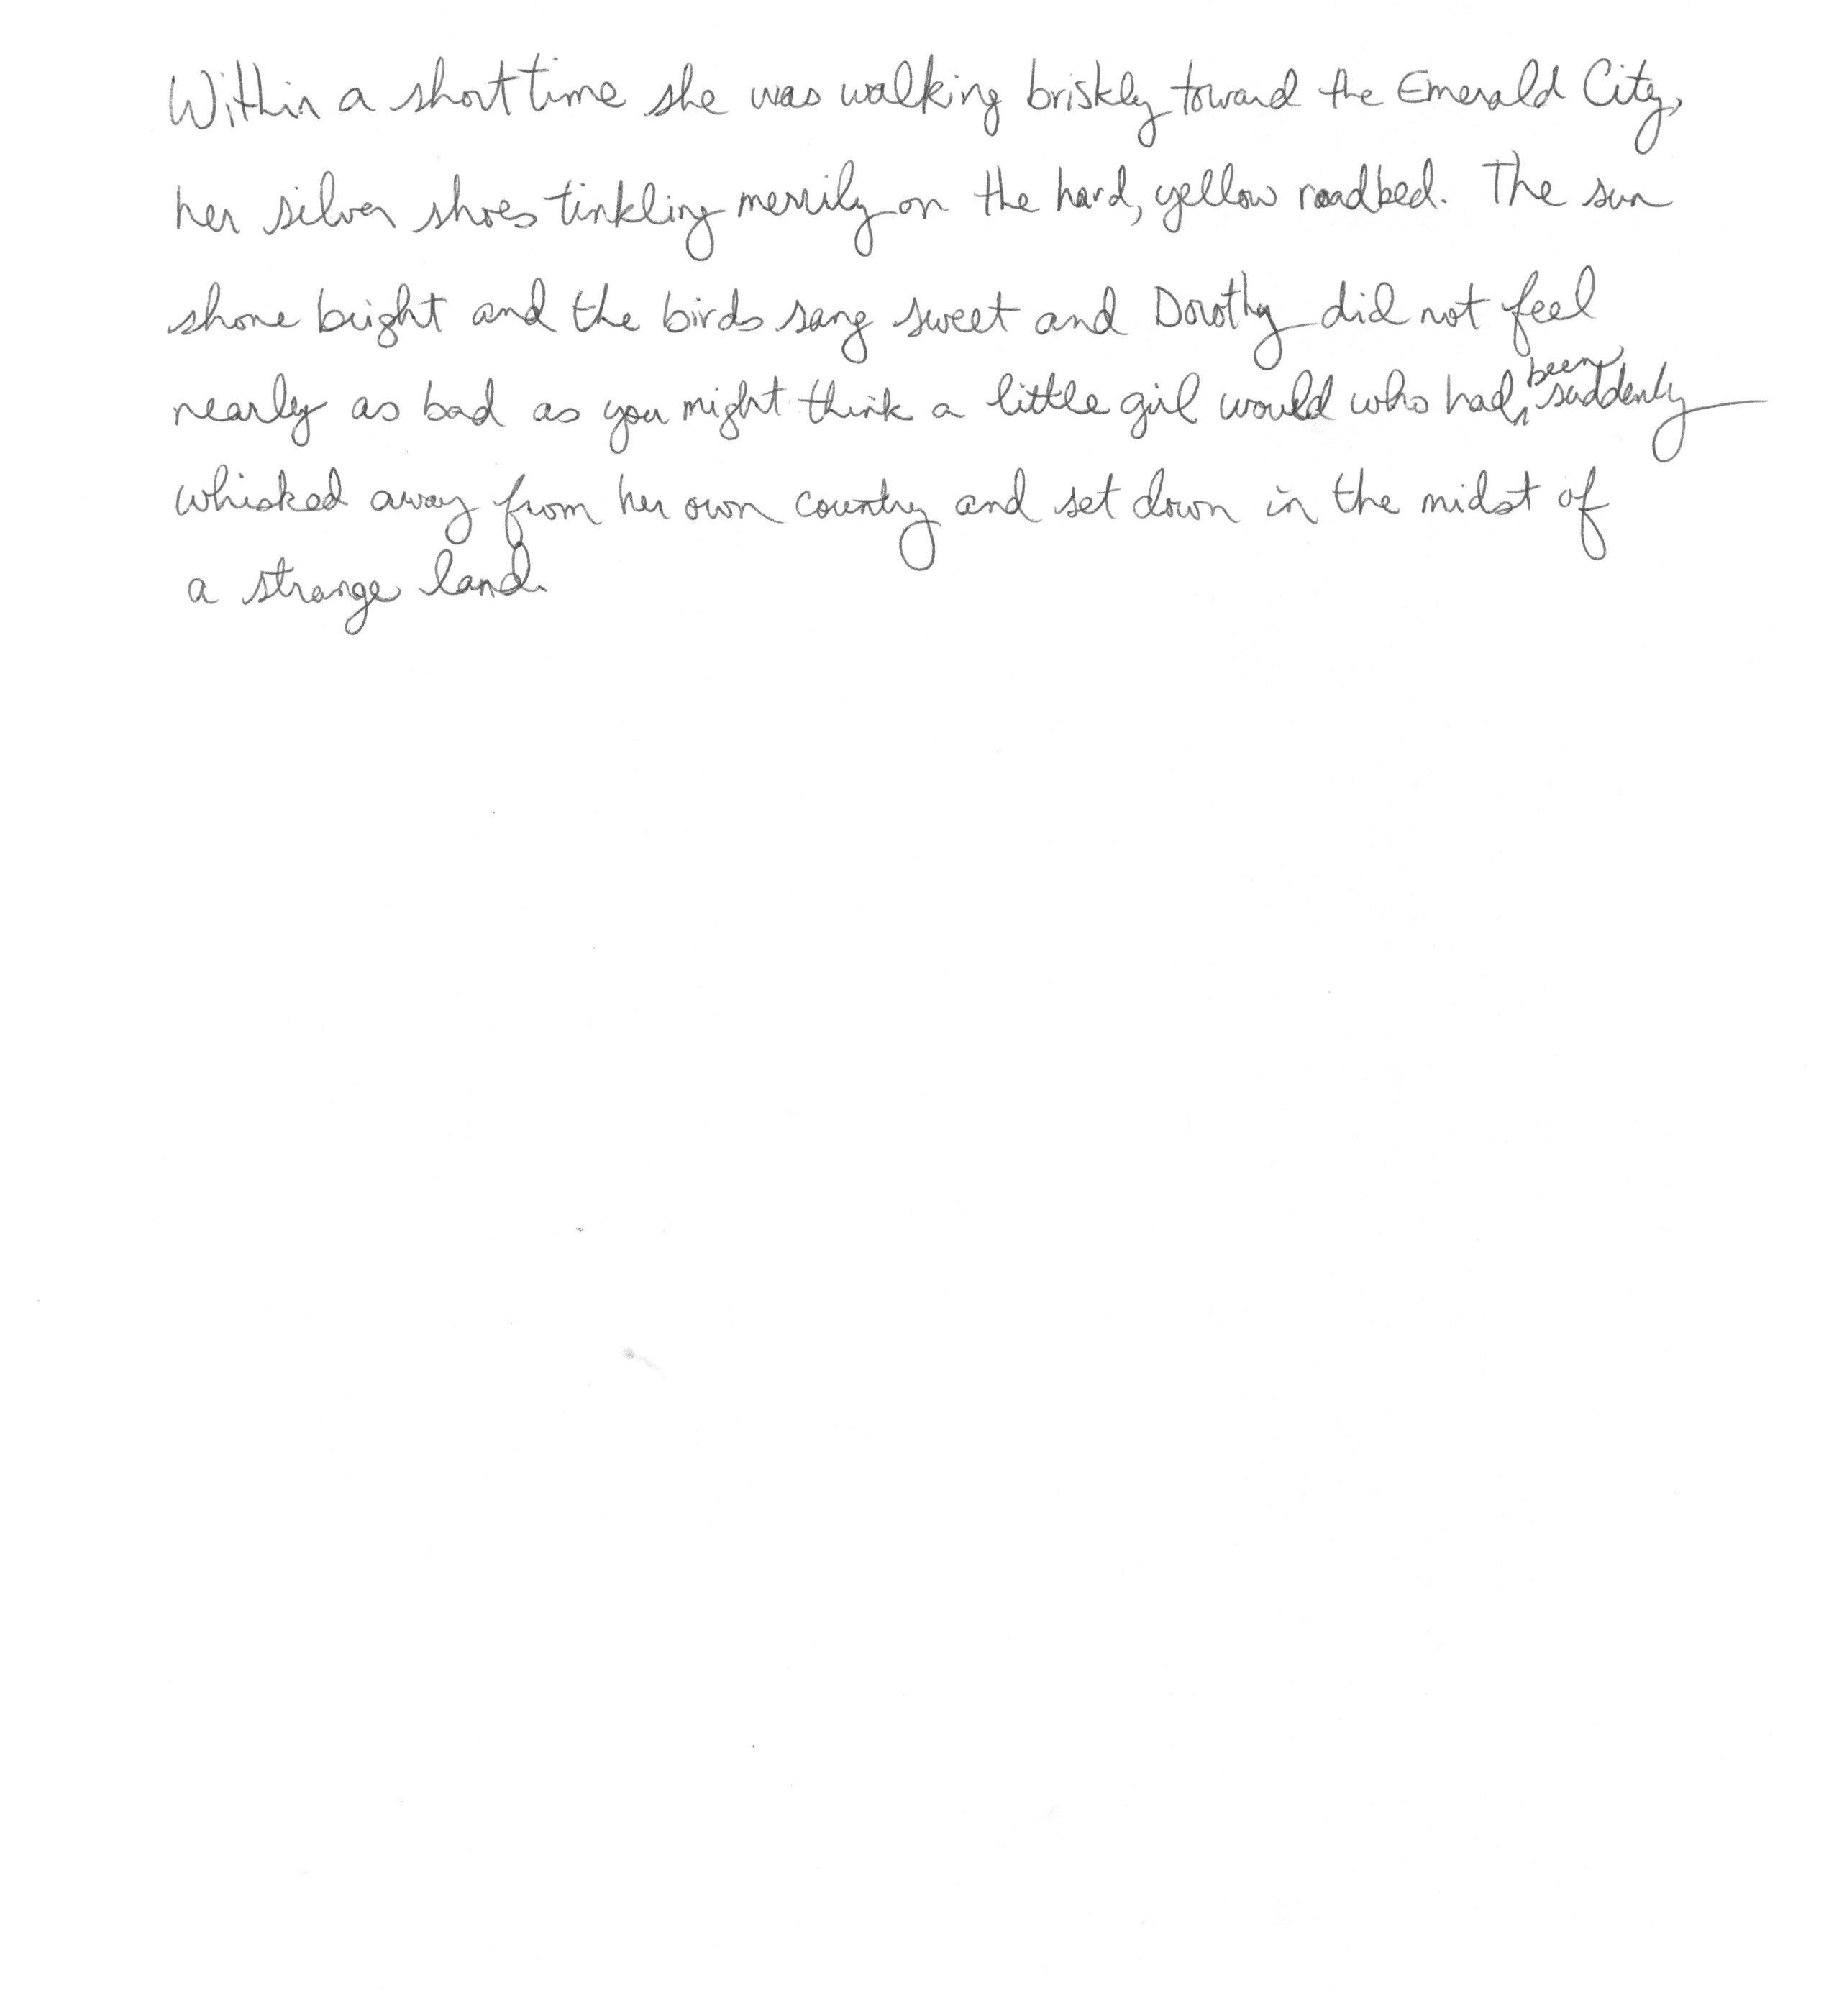 Within a short time she was walking briskly toward the Emerald City,
her silver shoes tinkling merrily on the hard, yellow roadbed. The sun
shone bright and the birds sang sweet and Dorothy did not feel
nearly as bad as you might think a little girl would who had been suddenly
whisked away from her own country and set down in the midst of
a strange land.